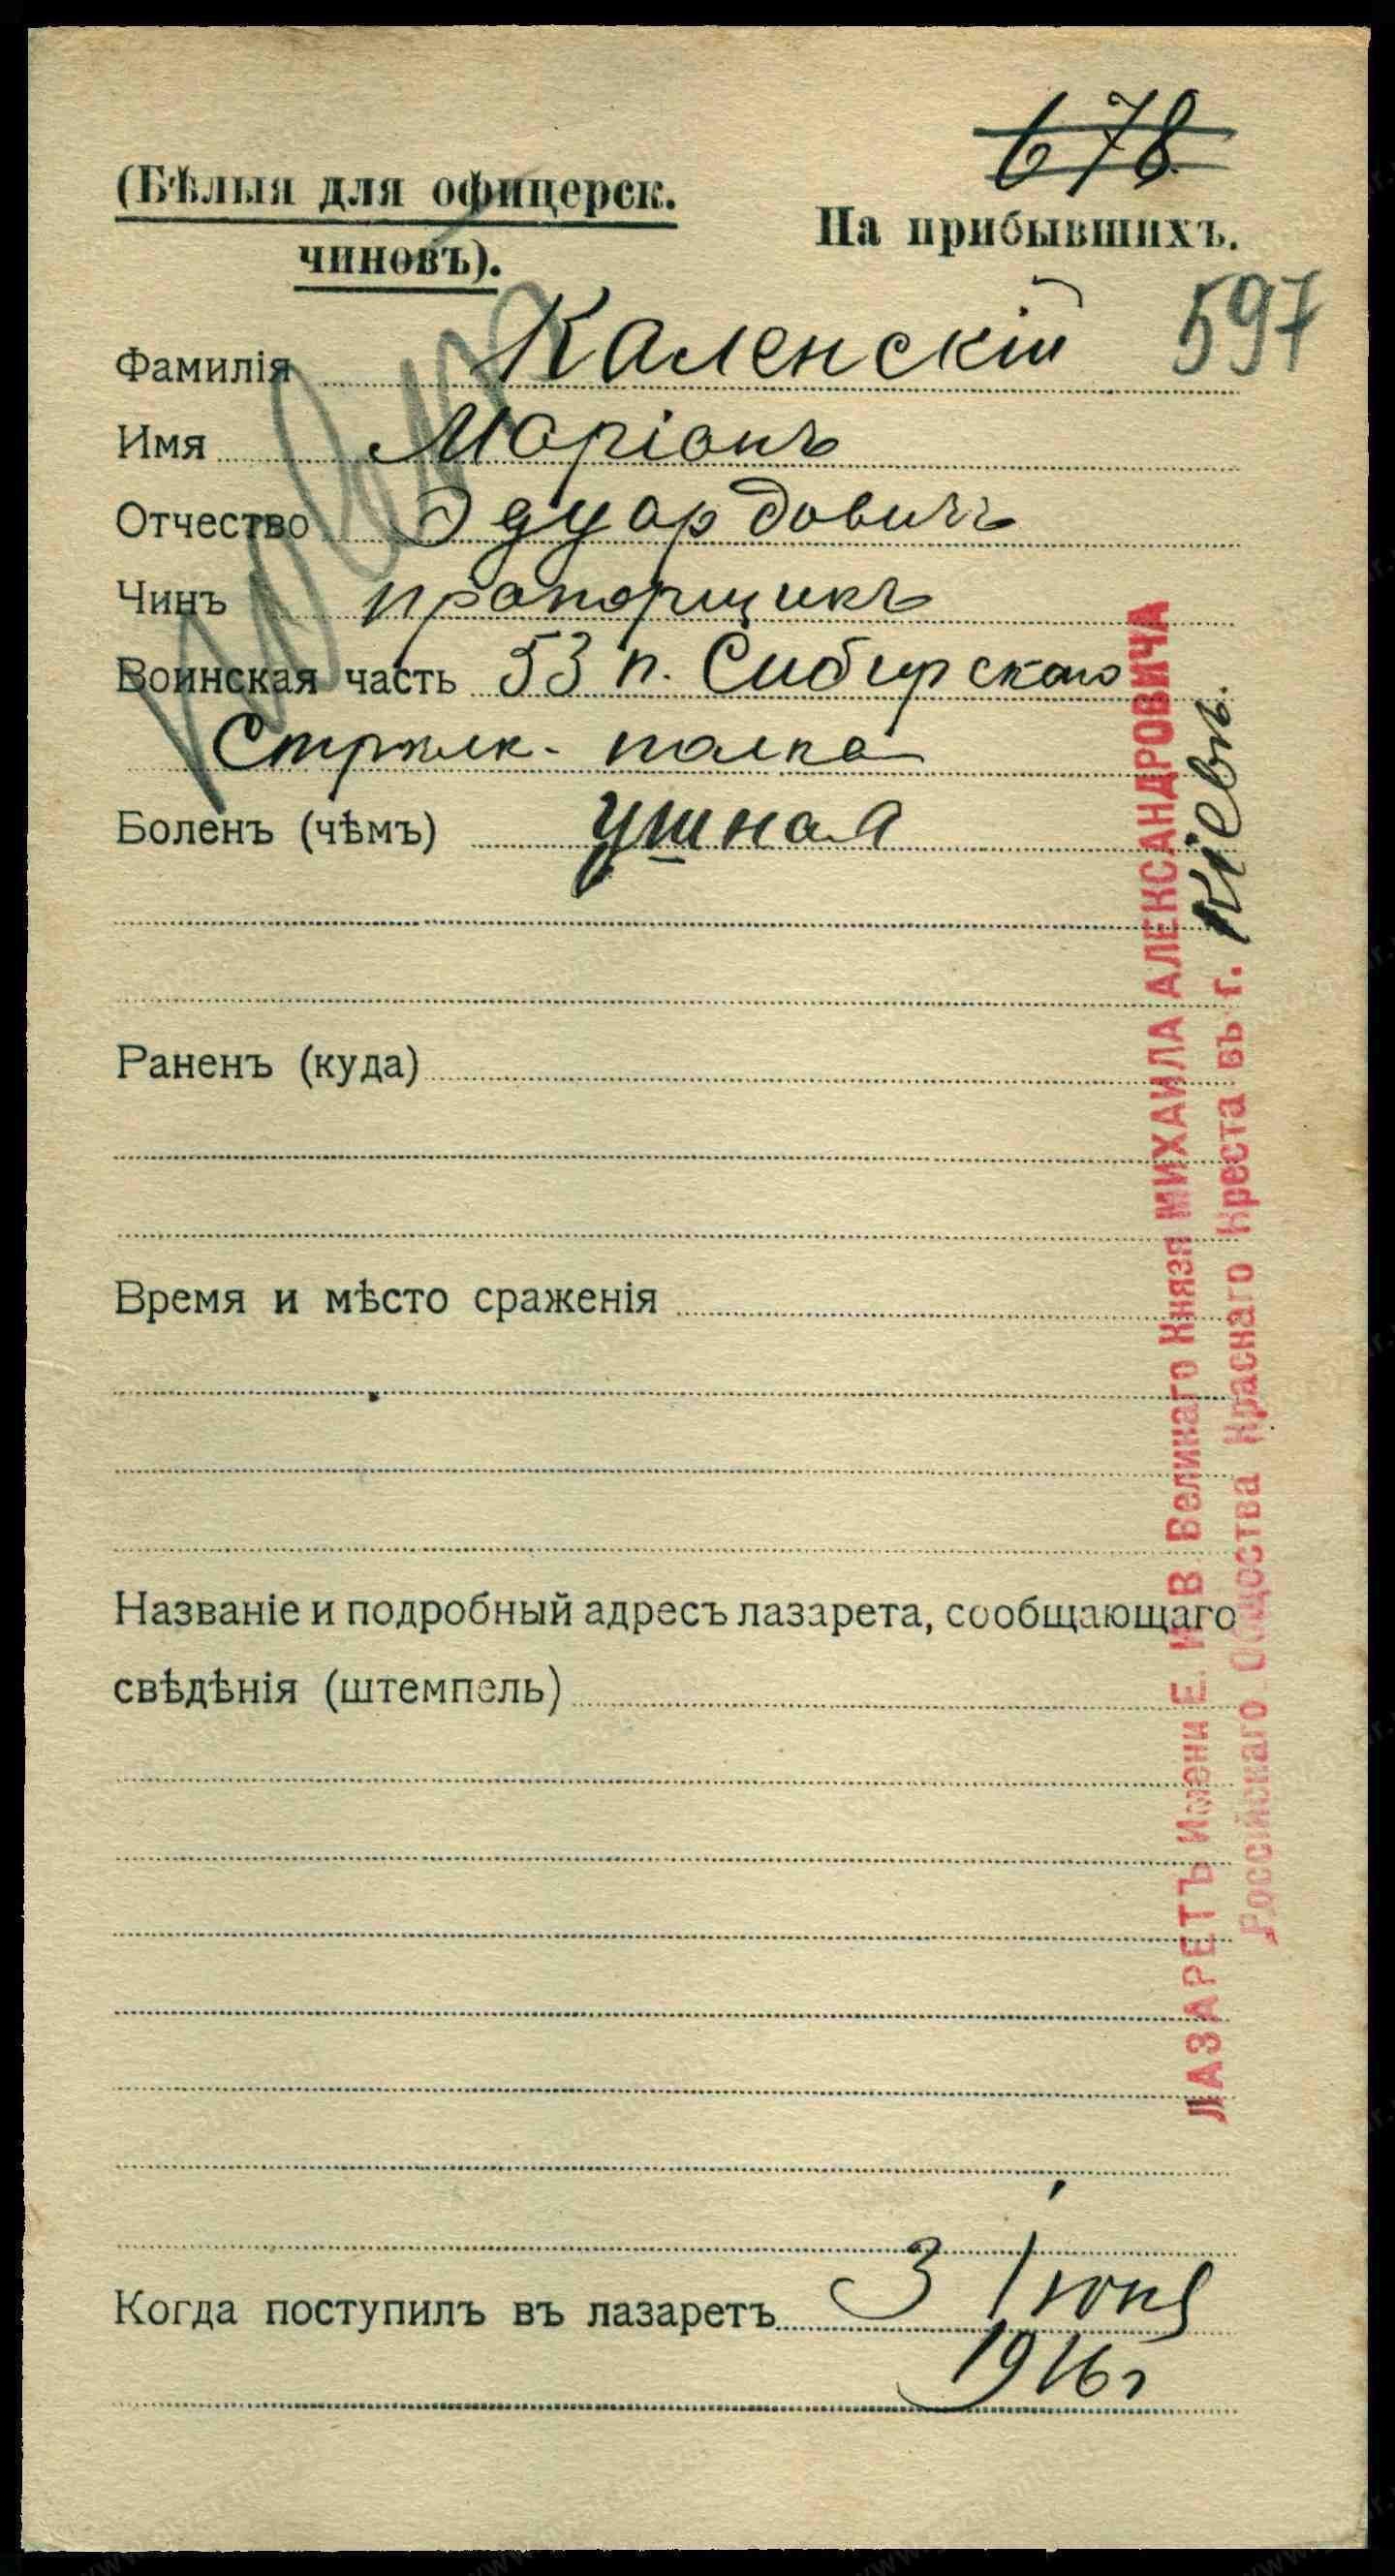 678
(Бѣлыя для офицерск.
чиновъ).
На прибывшихъ.
597
Фамилія Каленскій
Имя Маріанъ
Отчество Эдуардовичъ
Чинъ прапорщикъ
Воинская часть 53 п. Сибирскаго
Стрѣлк. полка
Боленъ (чѣмъ) ушная
Раненъ (куда)
Время и мѣсто сраженія
Названіе и подробный адресъ лазарета, сообщающаго
свѣдѣнія (штемпель)
ЛАЗАРЕТЪ Имени Е. И В Великаго Князя МИХАИЛА АЛЕКСАНДРОВИЧА
Россійскаго Общества Краснаго Креста въ г. Кіевѣ.
Когда поступилъ въ лазаретъ 3 Іюня
1916 г